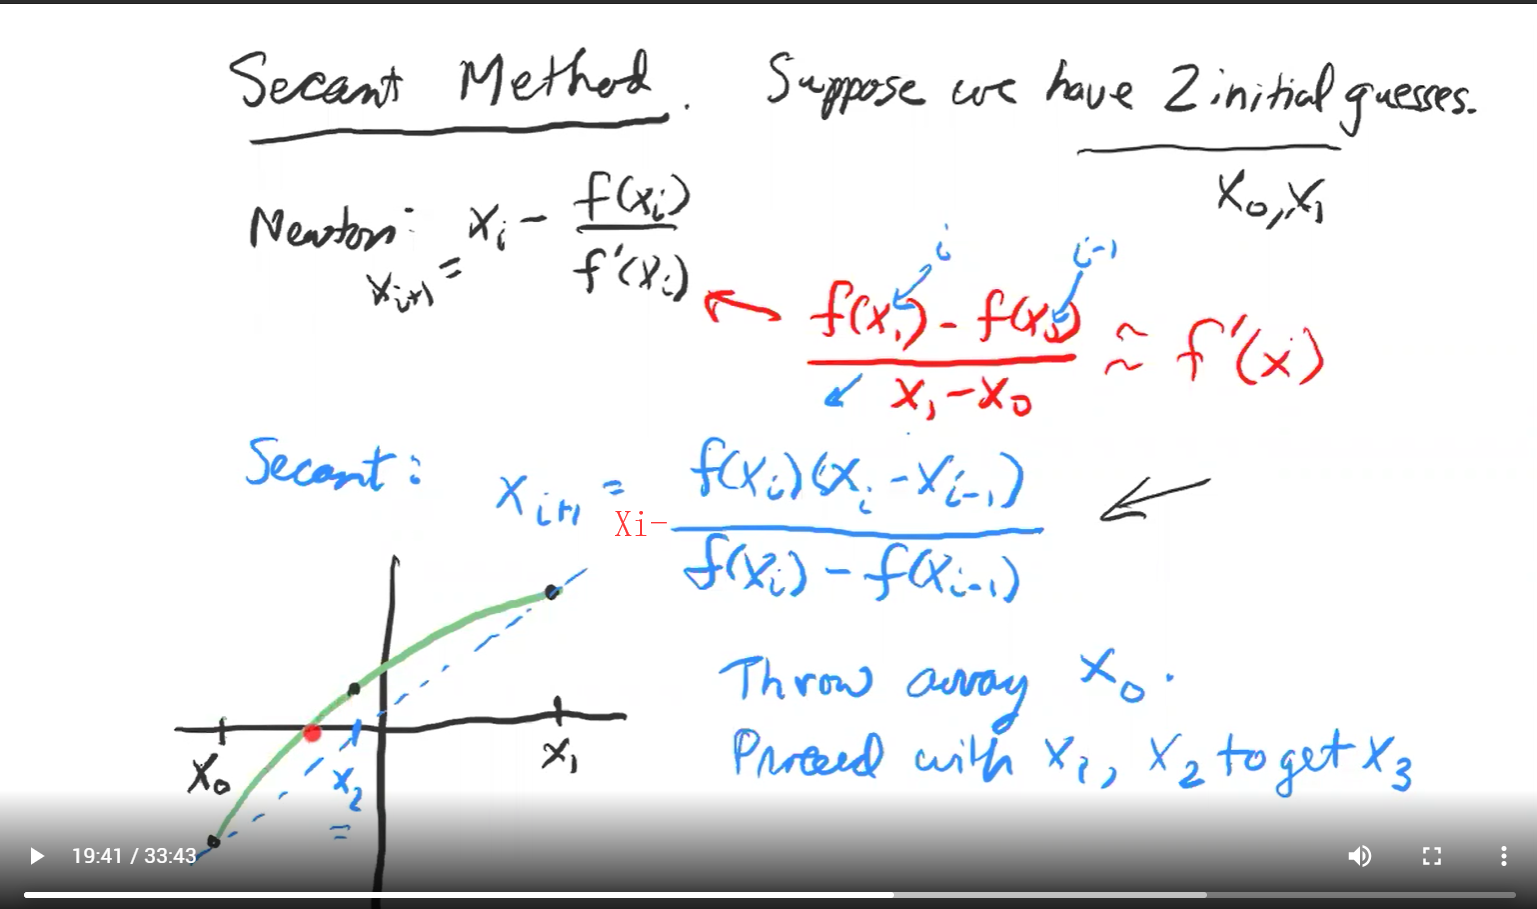 Secant Method. Suppose we have 2 initial guesses.
x₀, x₁
Newton: xᵢ₊₁ = xᵢ - f(xᵢ)/f'(xᵢ)
i i-1
(f(x₁) - f(x₀))/(x₁ - x₀) ≈ f'(x)
Secant: xᵢ₊₁ = Xi- f(xᵢ)(xᵢ - xᵢ₋₁)/(f(xᵢ) - f(xᵢ₋₁))
Throw away x₀.
Proceed with x₁, x₂ to get x₃
x₀ x₂ x₁
=
19:41 / 33:43